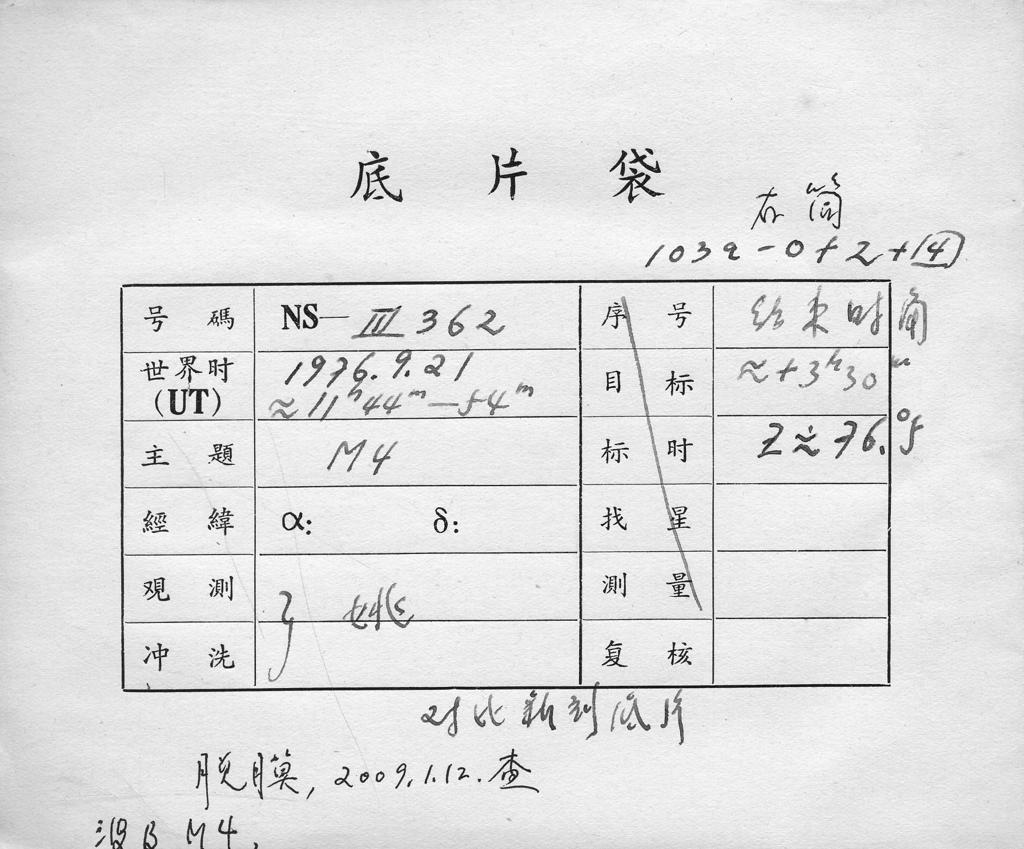 底 片 袋
右 筒
103a-O+2+14
号 碼 NS— III 362 序 号 结束时角
世界时 (UT) 1976.9.21 ≈11ʰ44ᵐ—54ᵐ 目 标 ≈+3ʰ30ᵐ
主 題 M4 标 时 Z≈76.°5
經 緯 α: δ: 找 星
观 測 姚 測 量
冲 洗 复 核
对比新到底片
脱膜, 2009.1.12. 查
没 M4.